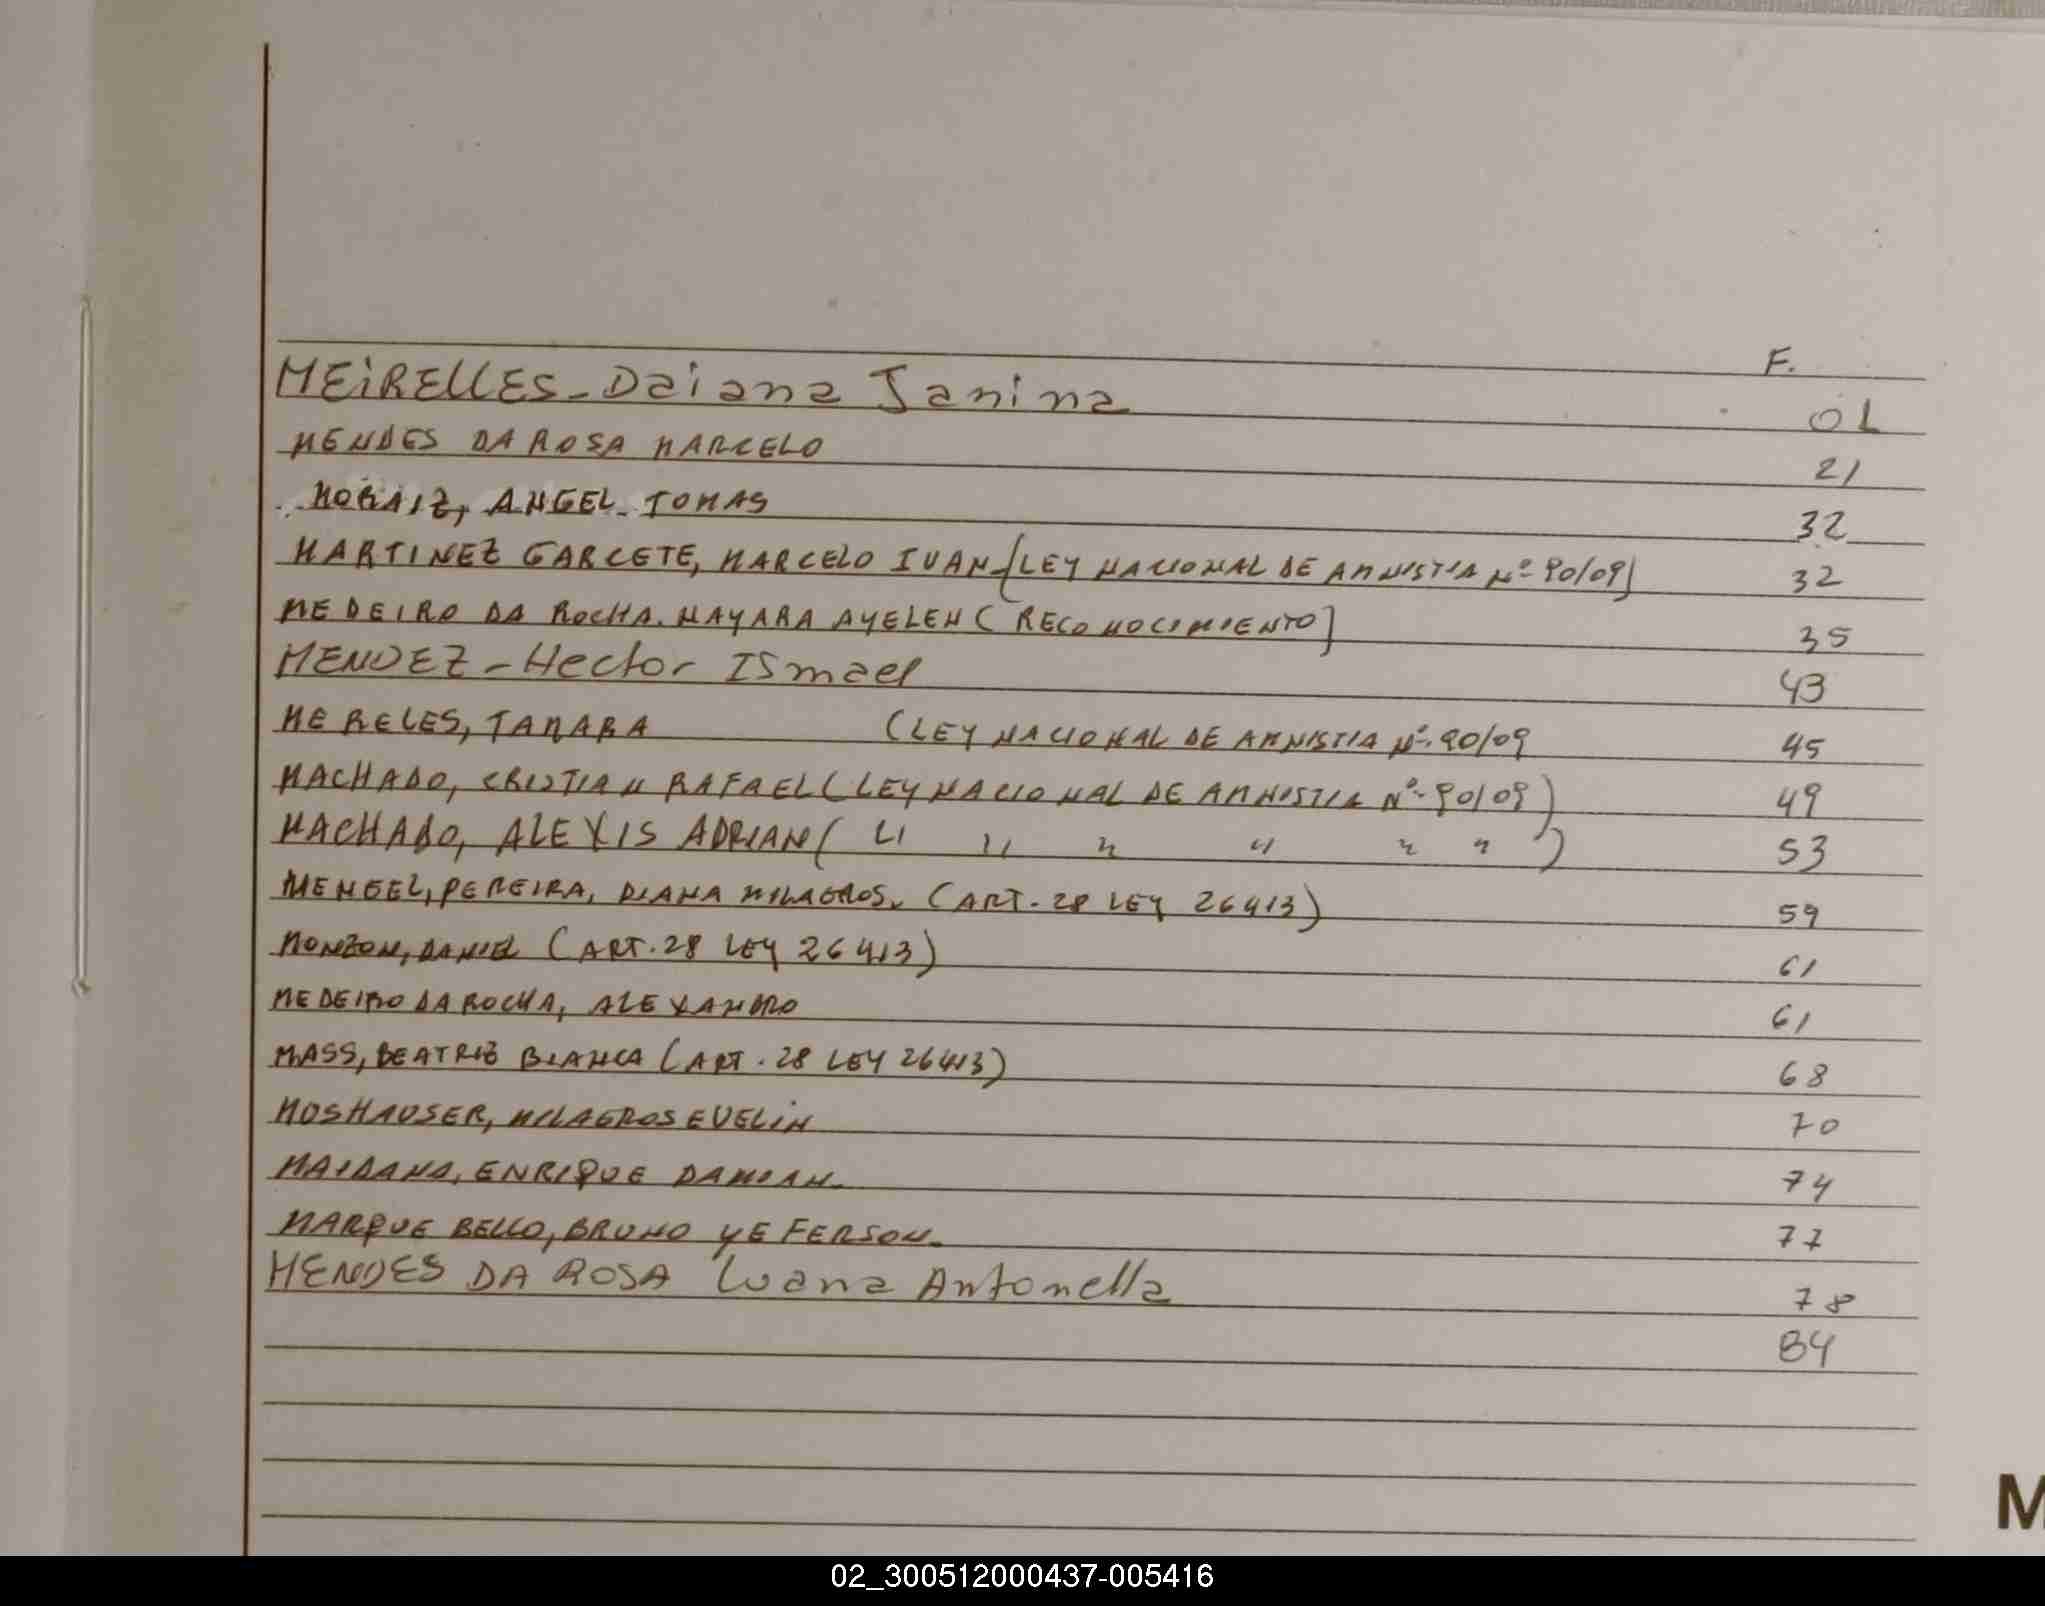 F.
MEIRELLES - Daiana Janina 01
MENDES DA ROSA MARCELO 21
MORAIZ, ANGEL TOMAS 32
MARTINEZ GARCETE, MARCELO IVAN - (LEY NACIONAL DE AMNISTIA Nº 90/09) 32
MEDEIRO DA ROCHA. MAYARA AYELEN ( RECONOCIMIENTO) 35
MENDEZ - Hector ISmael 43
MERELES, TAMARA (LEY NACIONAL DE AMNISTIA Nº. 90/09 45
MACHADO, CRISTIAN RAFAEL (LEY NACIONAL DE AMNISTIA Nº- 90/09) 49
MACHADO, ALEXIS ADRIAN ( " " " " " " ) 53
MENGEL, PEREIRA, DIANA MILAGROS. (ART. 28 LEY 26413) 59
MONZON, DANIEL (ART. 28 LEY 26413) 61
MEDEIRO DA ROCHA, ALEXANDRO 61
MASS, BEATRIZ BLANCA (ART. 28 LEY 26413) 68
MOSHAUSER, MILAGROS EVELIN 70
MAIDANA, ENRIQUE DAMIAN. 74
MARQUE BELLO, BRUNO YEFERSON. 77
MENDES DA ROSA Luana Antonella 78
84
M
02_300512000437-005416